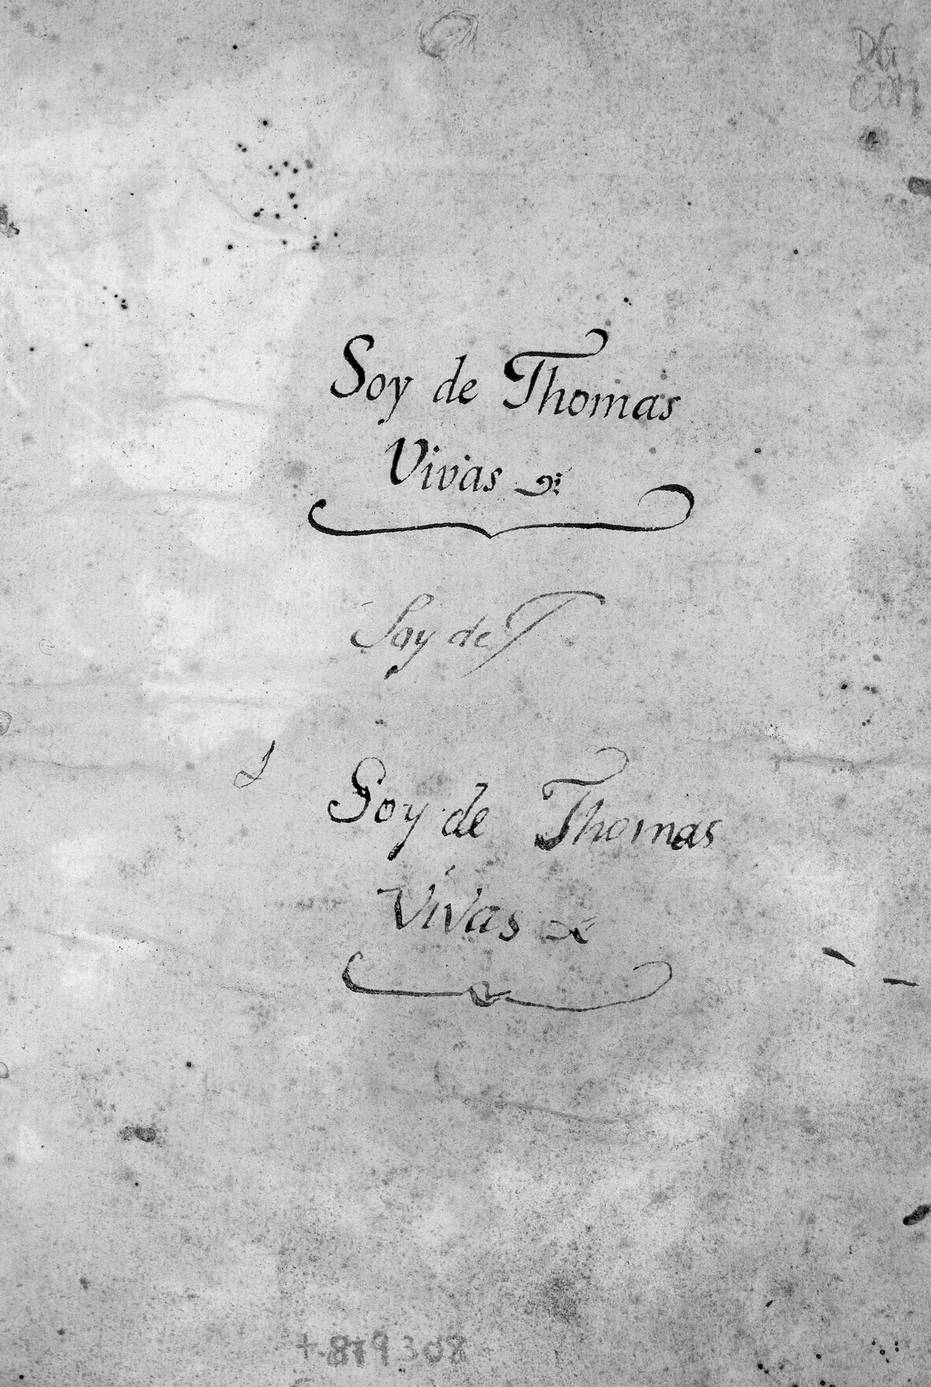 DG
Soy de Thomas
Vivas
Soy de T
Soy de Thomas
Vivas